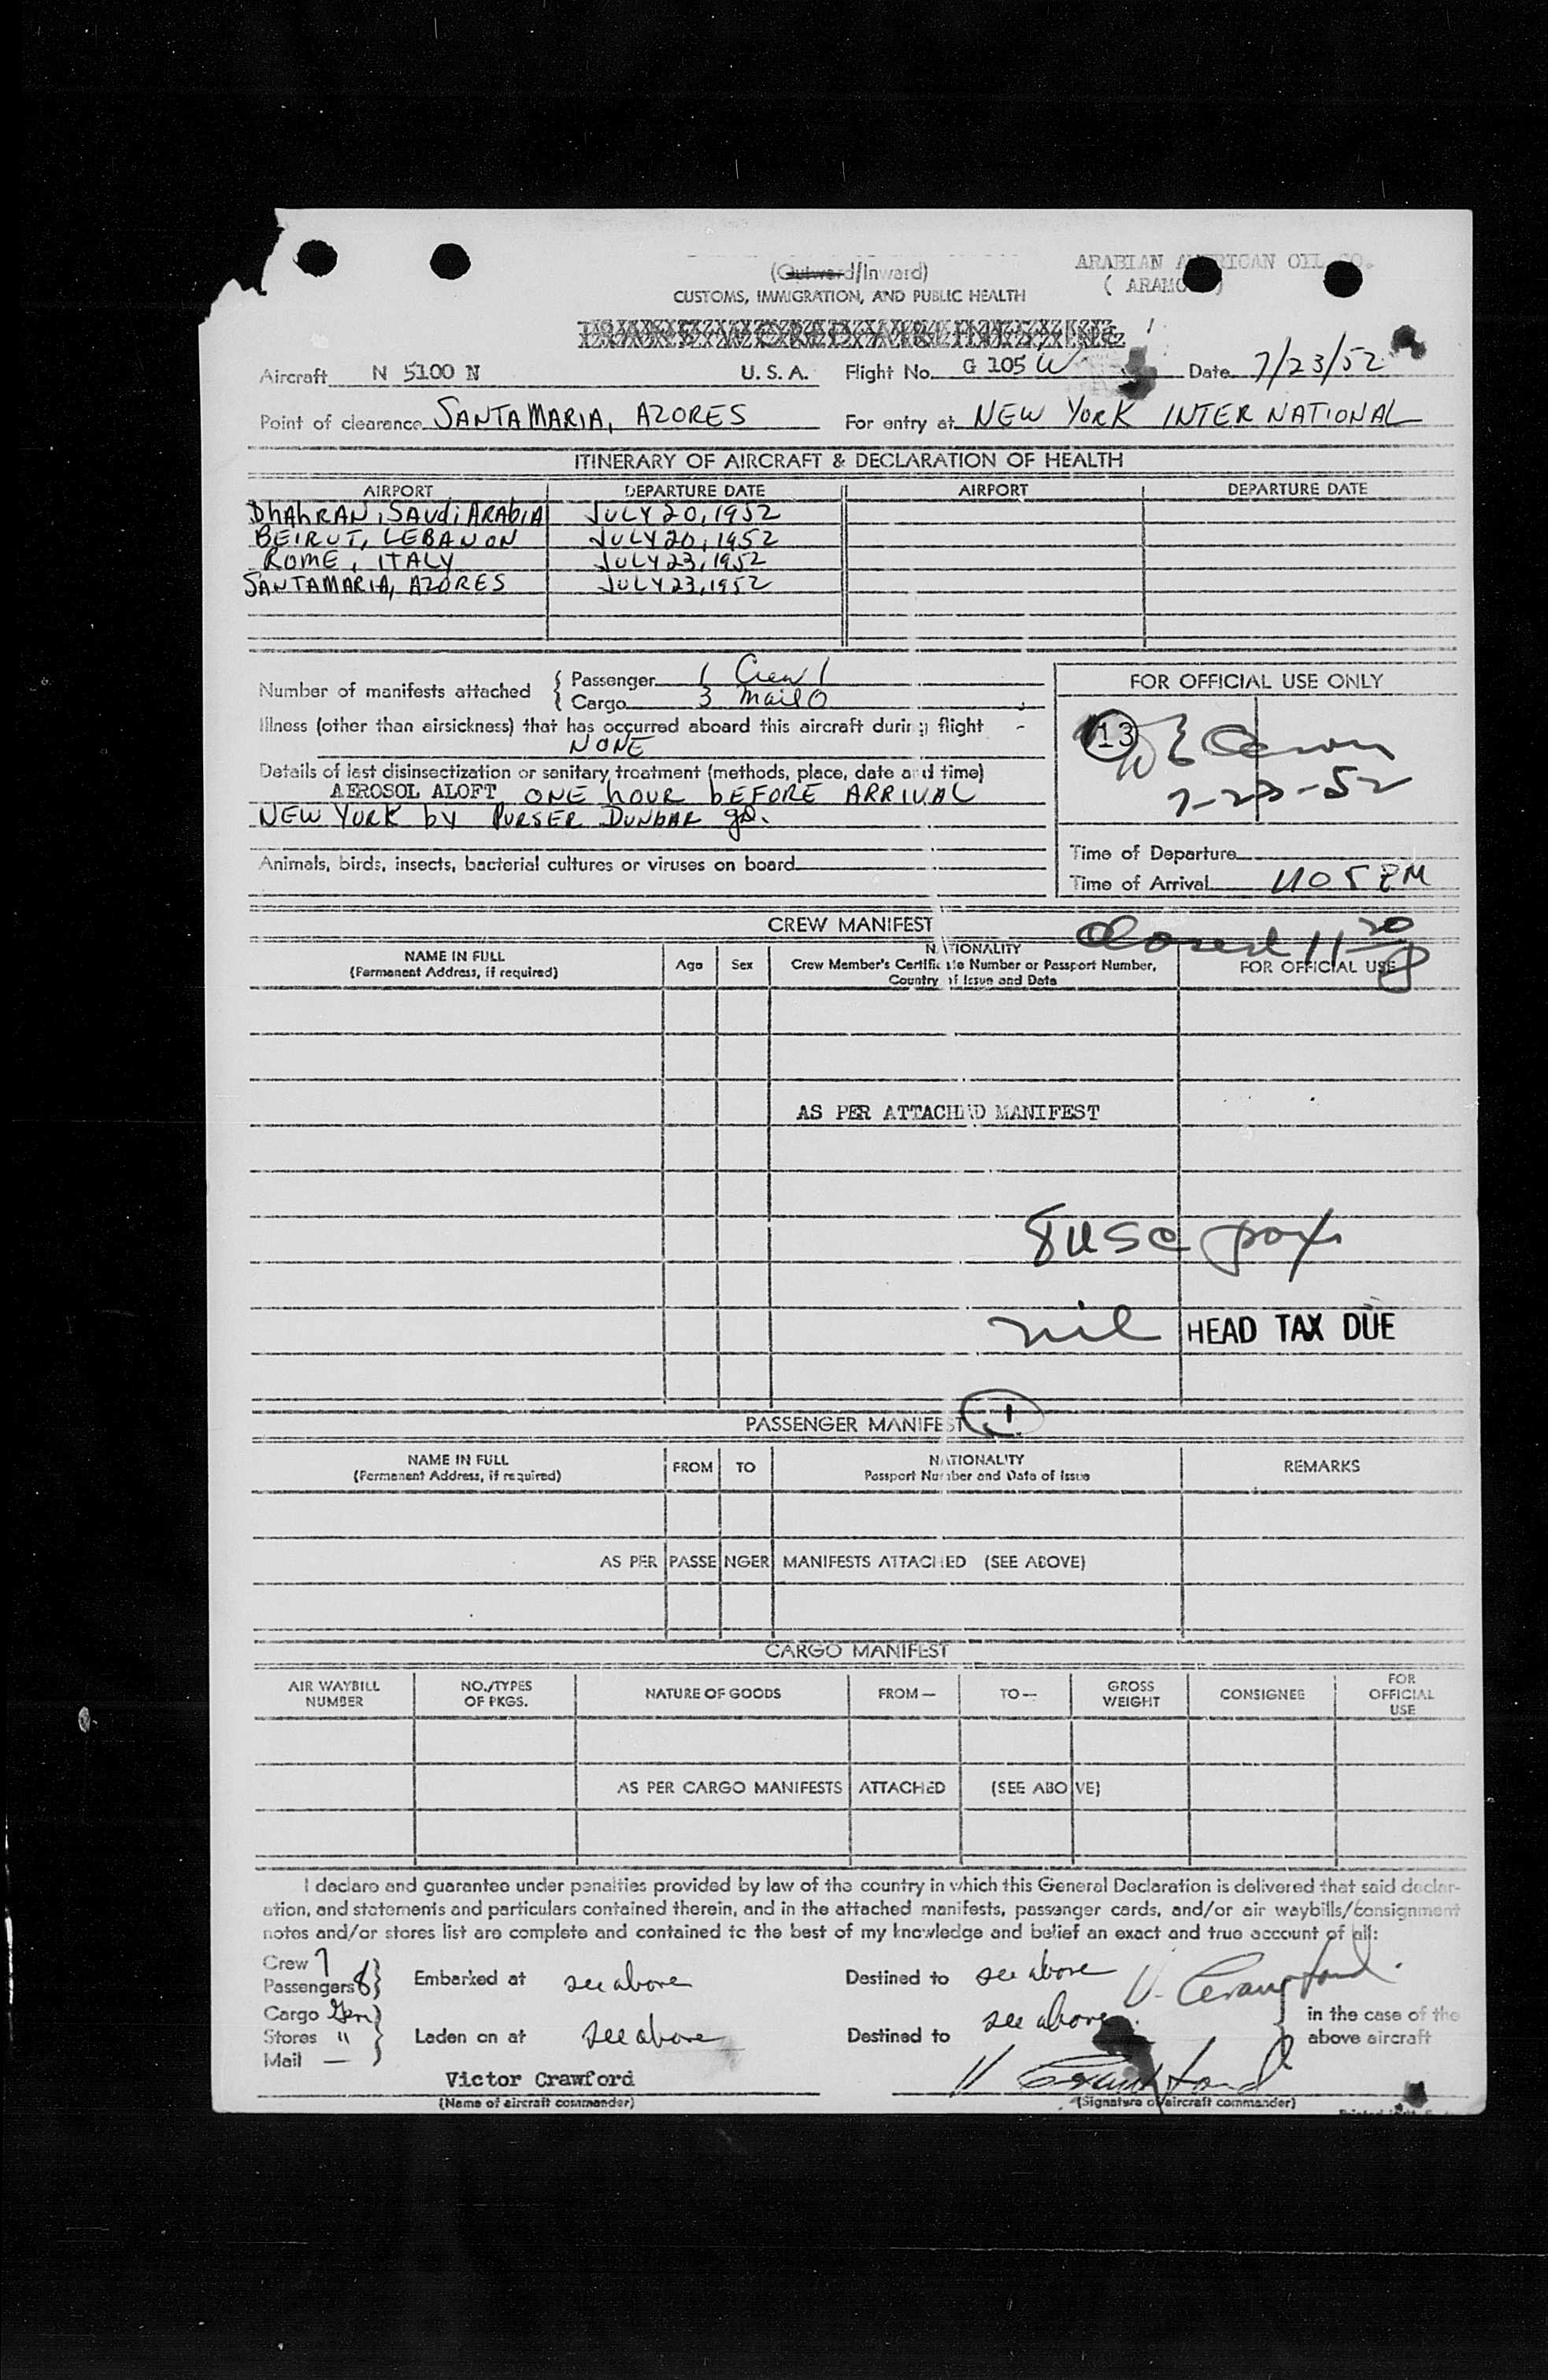 (Outward/Inward)
CUSTOMS, IMMIGRATION, AND PUBLIC HEALTH
ARABIAN AMERICAN OIL CO.
( ARAMCO )
Aircraft N 5100 N U. S. A. Flight No. G 105 W Date 7/23/52
Point of clearance SANTA MARIA, AZORES For entry at NEW YORK INTERNATIONAL
ITINERARY OF AIRCRAFT & DECLARATION OF HEALTH
AIRPORT DEPARTURE DATE AIRPORT DEPARTURE DATE
DhAhRAN, SAUdi ARAbiA JULY 20, 1952
BEIRUT, LEBANON JULY 20, 1952
ROME, ITALY JULY 23, 1952
SANTAMARIA, AZORES JULY 23, 1952
Number of manifests attached { Passenger 1 Crew 1
{ Cargo 3 Mail 0
Illness (other than airsickness) that has occurred aboard this aircraft during flight
NONE
Details of last disinsectization or sanitary treatment (methods, place, date and time)
AEROSOL ALOFT ONE hOUR bEFORE ARRIVAL
NEW YORK by PURSER DUNBAR
Animals, birds, insects, bacterial cultures or viruses on board
FOR OFFICIAL USE ONLY
13
7-23-52
Time of Departure
Time of Arrival 1105 PM
closed 11 20
CREW MANIFEST
NAME IN FULL
(Permanent Address, if required)
Age Sex
NATIONALITY
Crew Member's Certificate Number or Passport Number,
Country of Issue and Date
FOR OFFICIAL USE
AS PER ATTACHED MANIFEST
8 USC
nil HEAD TAX DUE
PASSENGER MANIFEST 1
NAME IN FULL
(Permanent Address, if required)
FROM TO
NATIONALITY
Passport Number and Date of Issue
REMARKS
AS PER PASSENGER MANIFESTS ATTACHED (SEE ABOVE)
CARGO MANIFEST
AIR WAYBILL NUMBER
NO./TYPES OF PKGS.
NATURE OF GOODS
FROM—
TO—
GROSS WEIGHT
CONSIGNEE
FOR OFFICIAL USE
AS PER CARGO MANIFESTS ATTACHED (SEE ABOVE)
I declare and guarantee under penalties provided by law of the country in which this General Declaration is delivered that said declar-
ation, and statements and particulars contained therein, and in the attached manifests, passenger cards, and/or air waybills/consignment
notes and/or stores list are complete and contained to the best of my knowledge and belief an exact and true account of all:
Crew 7
Passengers 8 } Embarked at see above Destined to see above V. Crawford
Cargo Gen
Stores " } Laden on at see above Destined to see above } in the case of the above aircraft
Mail —
Victor Crawford V Crawford
(Name of aircraft commander) (Signature of aircraft commander)